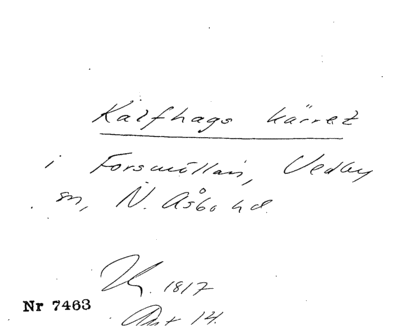 Kalfhags kärret
i Forsmöllan, Vedby
sn, N. Åsbo hd.
1817
Nr 7463
Akt 14.